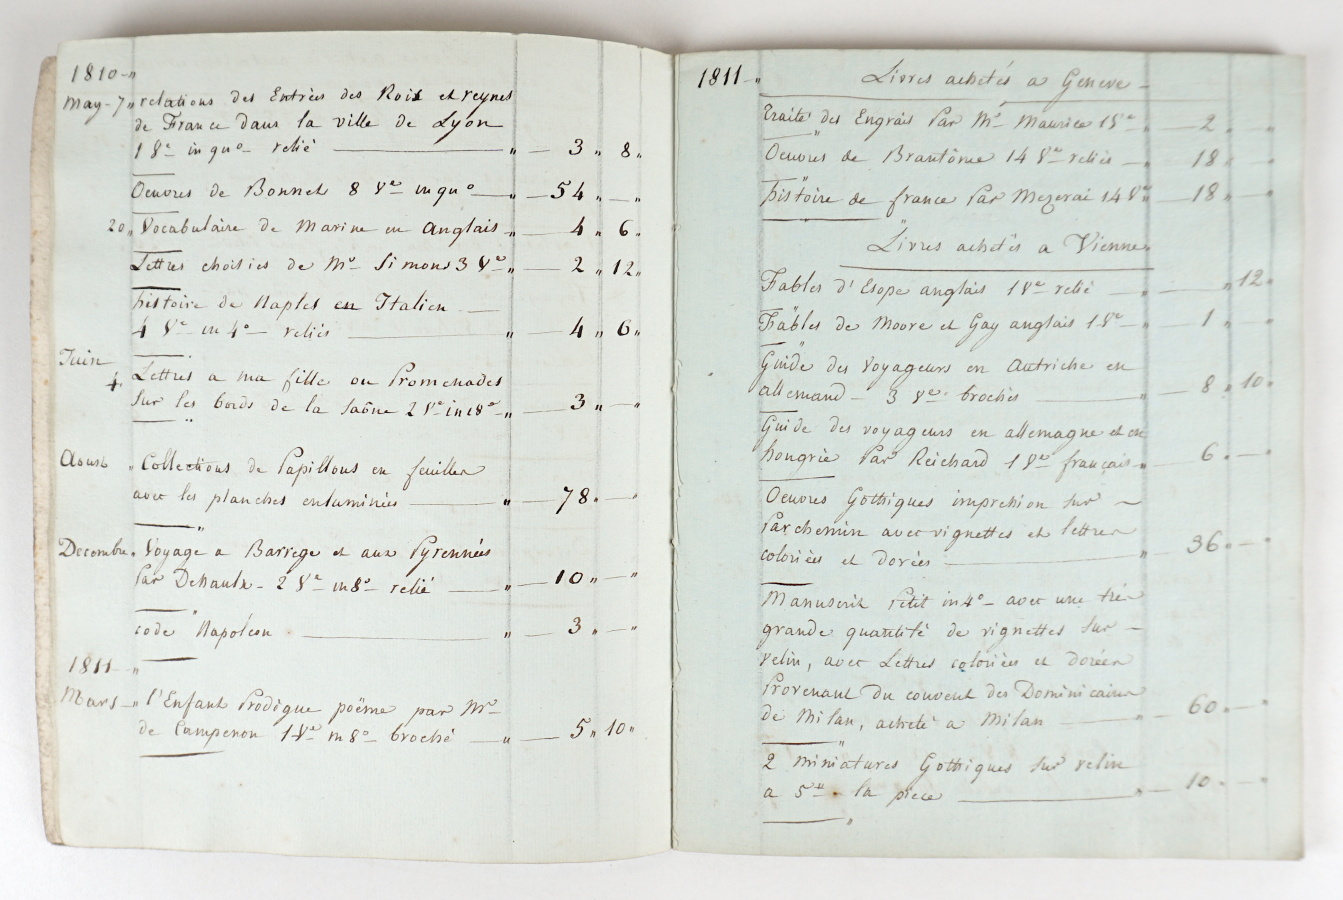 1810 -"
May - 7 " relations des Entrées des Rois et reynes
de France dans la ville de Lyon
1 Ve in quo relié — " — 3 " 8 "
Oeuvres de Bonnet 8 Ve in quo — " — 54 " — "
20 " Vocabulaire de Marine en anglais " — 4 " 6 "
Lettres choisies de Mr Simon 3 Ve " — 2 " 12 "
histoire de Naples en Italien —
4 Ve in 4o reliés — " — 4 " 6 "
Juin
4 " Lettres a ma fille ou Promenades
sur les bords de la Saône 2 Ve in 18o " — 3 " — "
Aoust " Collections de Papillons en feuilles
avec les planches enluminées — " — 78 " — "
Decembre " Voyage a Barrege et aux Pyrennées
par Dehaulx - 2 Ve in 8o relié — " — 10 " — "
code Napoléon — " — 3 " — "
1811 - "
Mars - " l'Enfant Prodigue poëme par Mr
de Campenon 1 Ve in 8o broché — " — 5 " 10 "
1811 - " Livres achetés a Geneve -
traité des Engrais Par Mr Maurice 1 Ve " — 2 " — "
Oeuvres de Brantôme 14 Ve reliés — " — 18 " — "
histoire de france Par Mezerai 14 Ve " — 18 " — "
Livres achetés a Vienne "
Fables d'Esope anglais 1 Ve relié — " — " 12 "
Fables de Moore et Gay anglais 1 Ve — " — 1 " — "
Guide des Voyageurs en Autriche en
allemand - 3 Ve brochés — " — 8 " 10 "
Guide des voyageurs en allemagne et en
hongrie Par Reichard 1 Ve français " — 6 " — "
Oeuvres Gothiques impression sur —
Parchemin avec vignettes et lettres
coloriées et dorées — " — 36 " — "
Manuscrit Petit in 4o - avec une tré-
grande quantité de vignettes sur —
velin, avec Lettres coloriées et dorées
Provenant du couvent des Dominicains
de Milan, acheté a Milan — " — 60 " — "
2 miniatures Gothiques sur velin
a 5# - la piece — " — 10 " — "